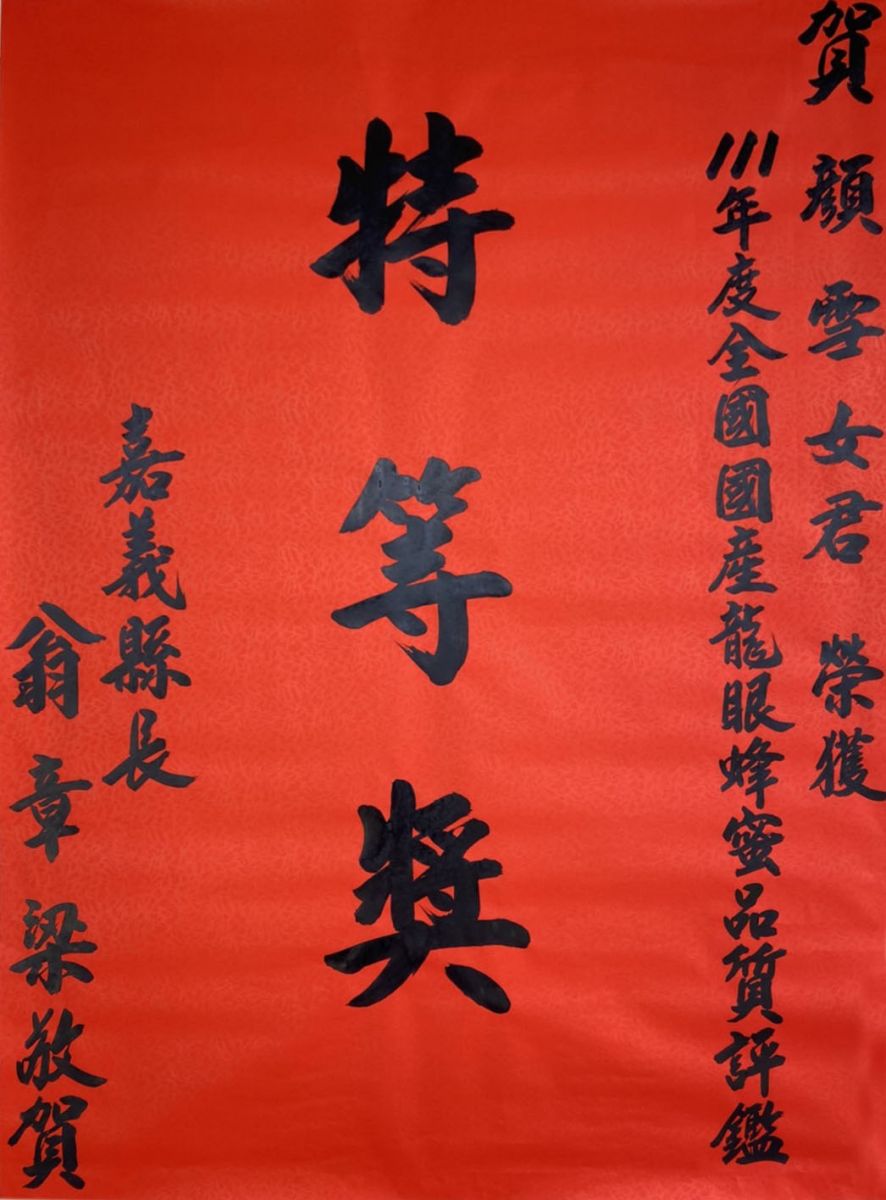 賀 顏雪女君 榮獲
111年度全國國產龍眼蜂蜜品質評鑑
特等獎
嘉義縣長
翁章梁敬賀